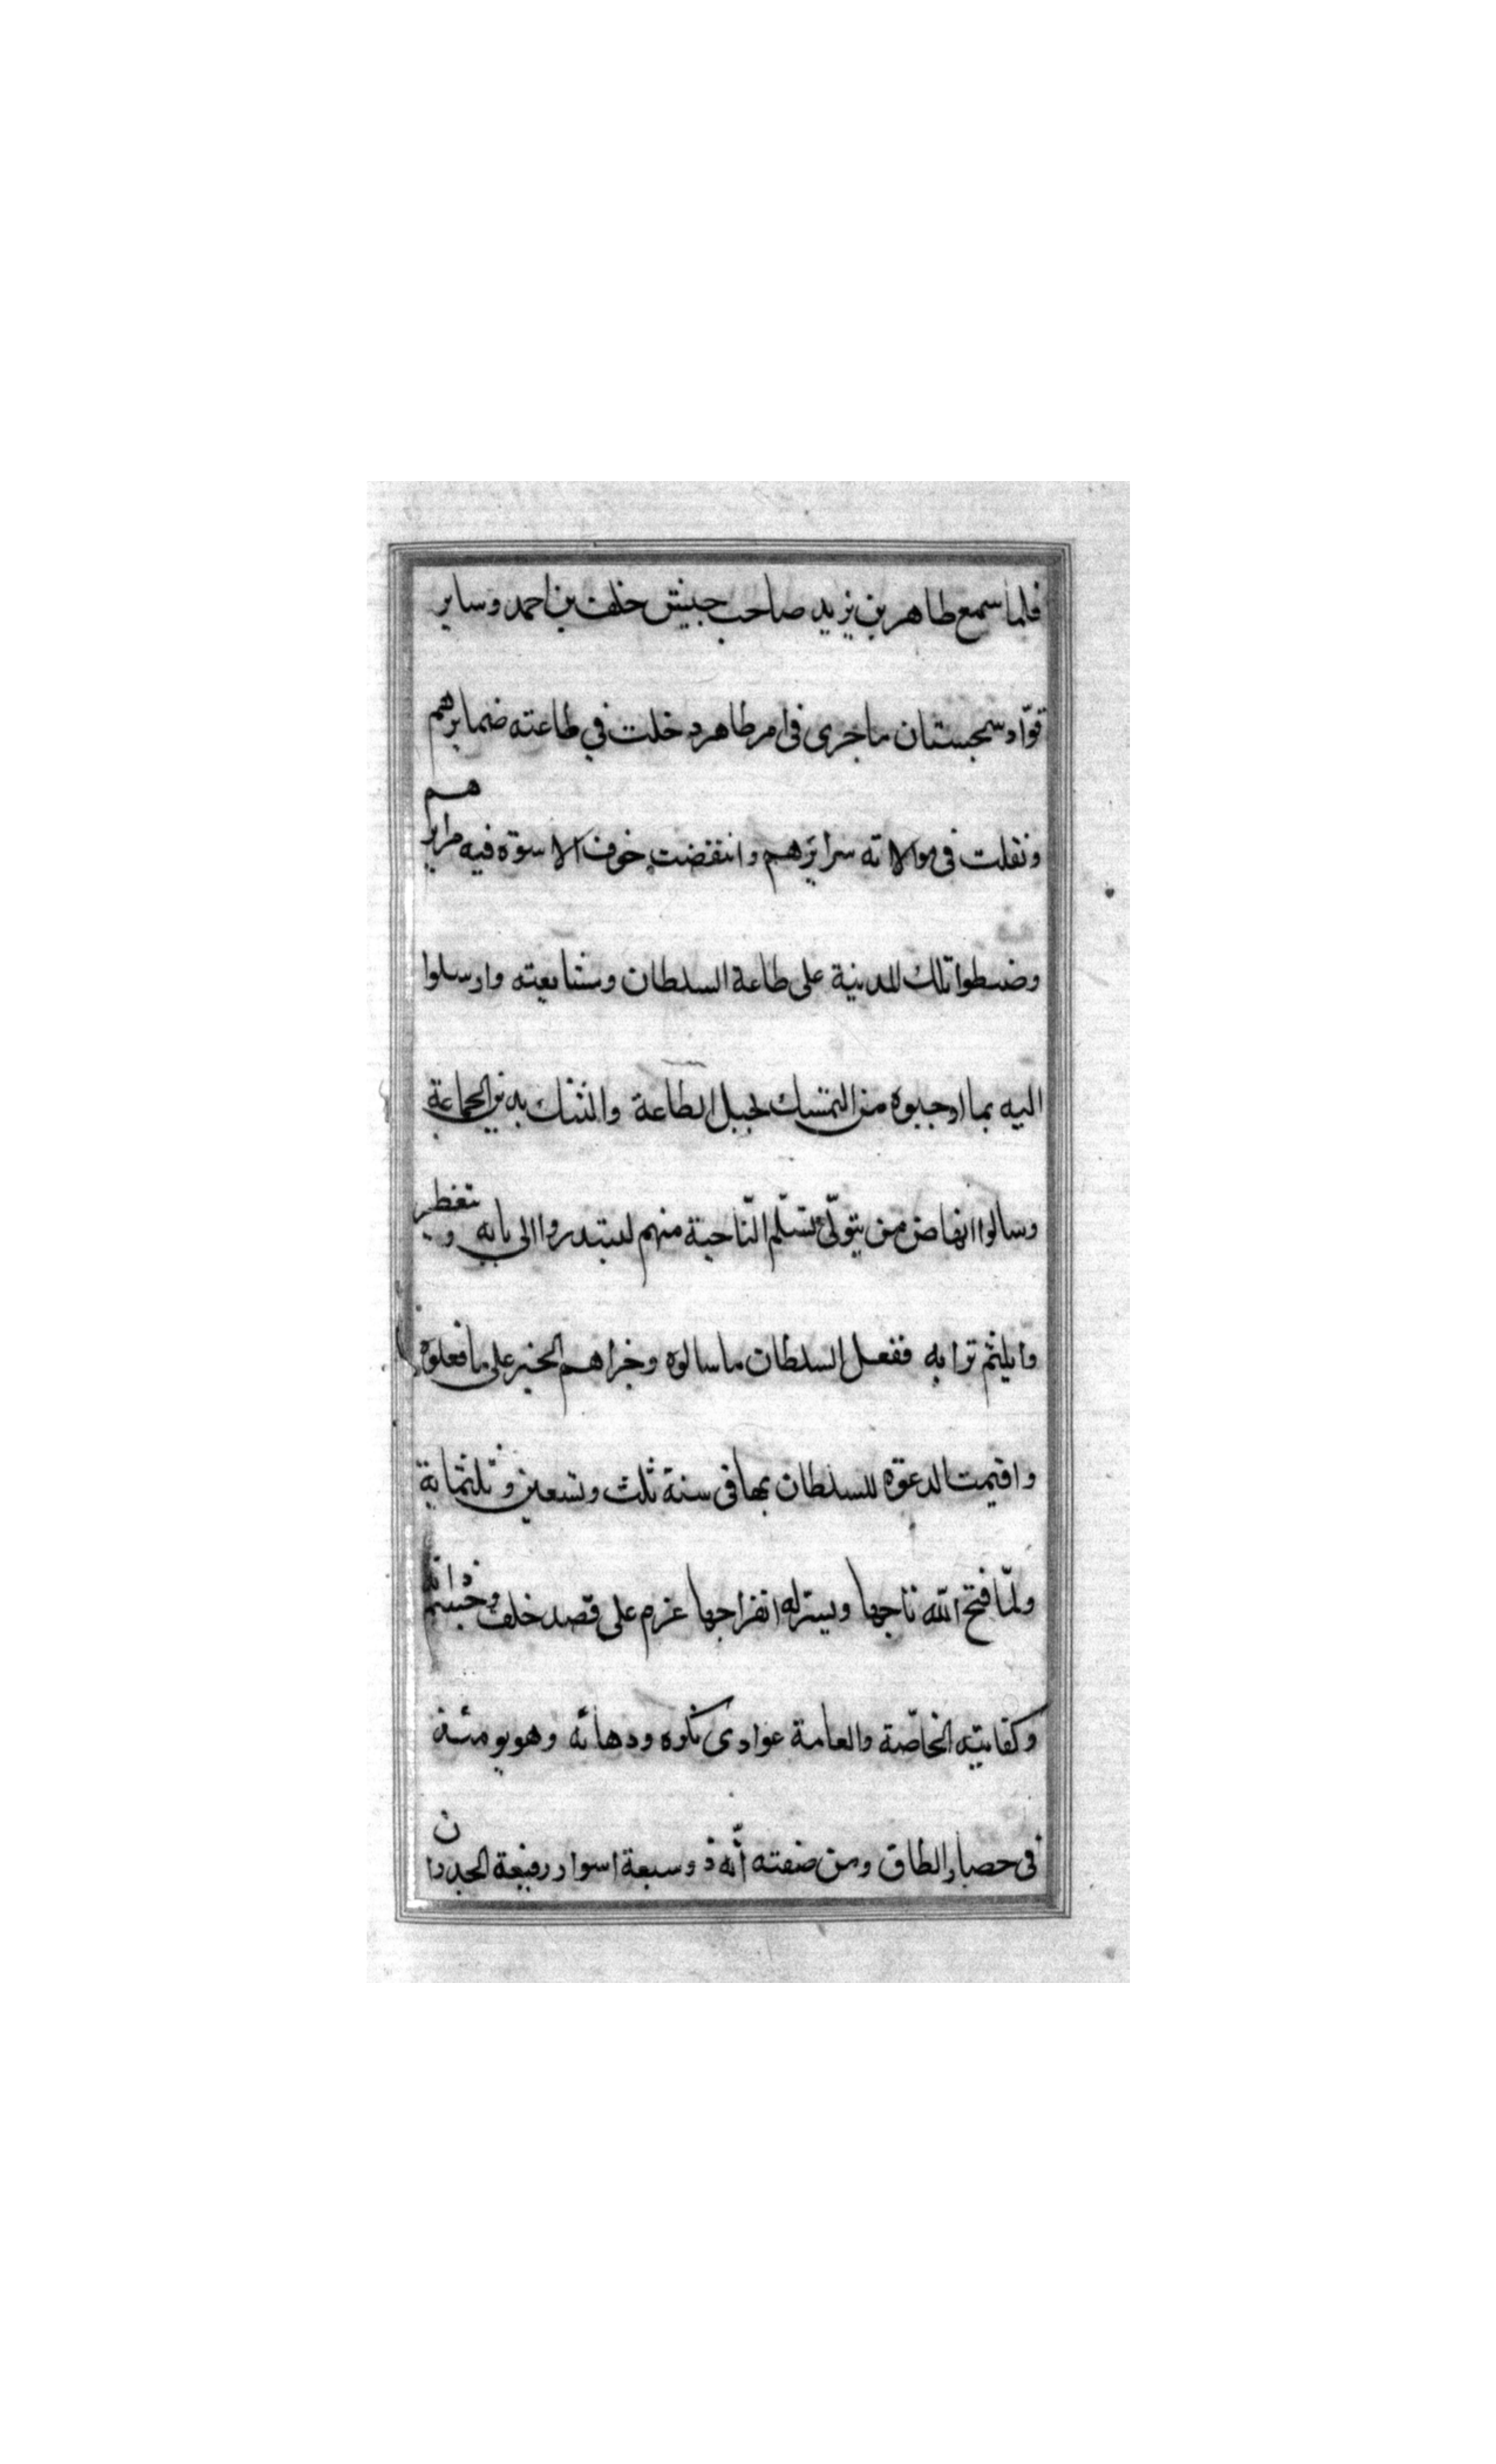 فلما سمع طاهر بن يزيد صاحب جيش خلف بن احمد وساير
قوّاد سجستان ما جرى فى امر طاهر دخلت في طاعته ضمايرهم
ونغلت فى موالاته سرايرهم وانتقضت خوف الاسوة فيه مرايرهم
وضبطوا تلك المدينة على طاعة السلطان ومتابعته وارسلوا
اليه بما اوجبوه من التمسك بحبل الطاعة والتنسك بدين الجماعة
وسالوا انهاض من يتولّى تسلّم النّاحية منهم ليبتدروا الى بابه و
وا بلثم ترابه ففعل السلطان ما سالوه وجزاهم الخير على ما فعلوه
واقيمت الدعوة للسلطان بها فى سنة ثلث وتسعين وثلثماية
ولمّا فتح الله تاجها ويسّر له انفراجها عزم على قصد خلف
وكفايته الخاصّة والعامة عوادى نكره ودهائه وهو يومئذ
فى حصار الطاق ومن صفته أنّه ذو سبعة اسوار رفيعة الجدران